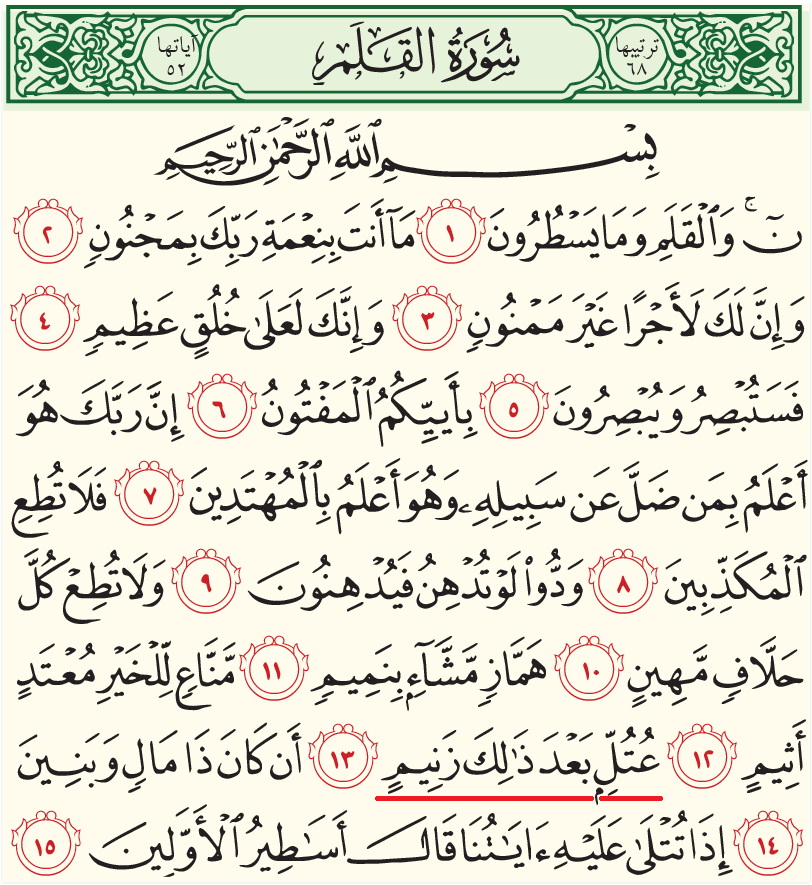 ترتيبها ٦٨ سُورَةُ القَلَمِ آياتها ٥٢
بِسْمِ ٱللَّهِ ٱلرَّحْمَٰنِ ٱلرَّحِيمِ
نٓ ۚ وَٱلْقَلَمِ وَمَا يَسْطُرُونَ ١ مَآ أَنتَ بِنِعْمَةِ رَبِّكَ بِمَجْنُونٍ ٢
وَإِنَّ لَكَ لَأَجْرًا غَيْرَ مَمْنُونٍ ٣ وَإِنَّكَ لَعَلَىٰ خُلُقٍ عَظِيمٍ ٤
فَسَتُبْصِرُ وَيُبْصِرُونَ ٥ بِأَييِّكُمُ ٱلْمَفْتُونُ ٦ إِنَّ رَبَّكَ هُوَ
أَعْلَمُ بِمَن ضَلَّ عَن سَبِيلِهِۦ وَهُوَ أَعْلَمُ بِٱلْمُهْتَدِينَ ٧ فَلَا تُطِعِ
ٱلْمُكَذِّبِينَ ٨ وَدُّوا۟ لَوْ تُدْهِنُ فَيُدْهِنُونَ ٩ وَلَا تُطِعْ كُلَّ
حَلَّافٍ مَّهِينٍ ١٠ هَمَّازٍ مَّشَّآءٍۭ بِنَمِيمٍ ١١ مَّنَّاعٍ لِّلْخَيْرِ مُعْتَدٍ
أَثِيمٍ ١٢ عُتُلٍّۭ بَعْدَ ذَٰلِكَ زَنِيمٍ ١٣ أَن كَانَ ذَا مَالٍ وَبَنِينَ
١٤ إِذَا تُتْلَىٰ عَلَيْهِ ءَايَٰتُنَا قَالَ أَسَٰطِيرُ ٱلْأَوَّلِينَ ١٥